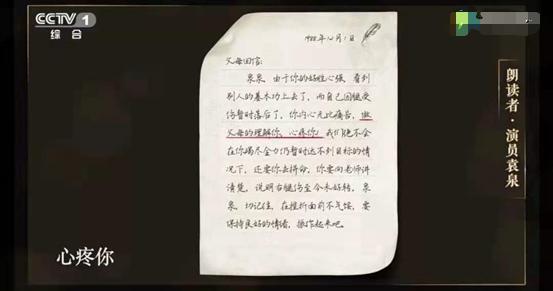 CCTV 1
综合
朗读者·演员袁泉
1988年12月1日
父母回信：
泉泉，由于你的好胜心强，看到
别人的基本功上去了，而自己因腿受
伤暂时落后了，你内心无比痛苦，做
父母的理解你，心疼你！我们绝不会
在你竭尽全力仍暂时达不到目标的情
况下，还要你去拼命，你要向老师讲
清楚，说明右腿伤至今未好转，泉
泉，切记住，在挫折面前不气馁，要
保持良好的情绪，振作起来吧。
心疼你